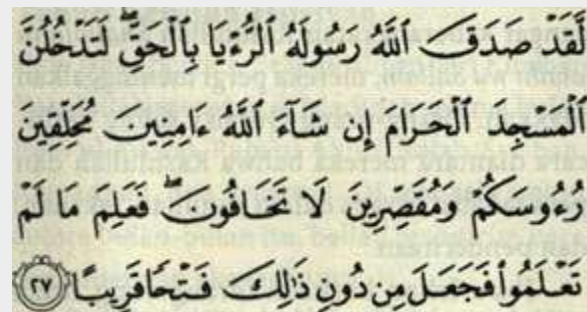 لَقَدْ صَدَقَ ٱللَّهُ رَسُولَهُ ٱلرُّءْيَا بِٱلْحَقِّ ۖ لَتَدْخُلُنَّ
ٱلْمَسْجِدَ ٱلْحَرَامَ إِن شَآءَ ٱللَّهُ ءَامِنِينَ مُحَلِّقِينَ
رُءُوسَكُمْ وَمُقَصِّرِينَ لَا تَخَافُونَ ۖ فَعَلِمَ مَا لَمْ
تَعْلَمُوا۟ فَجَعَلَ مِن دُونِ ذَٰلِكَ فَتْحًا قَرِيبًا ٢٧